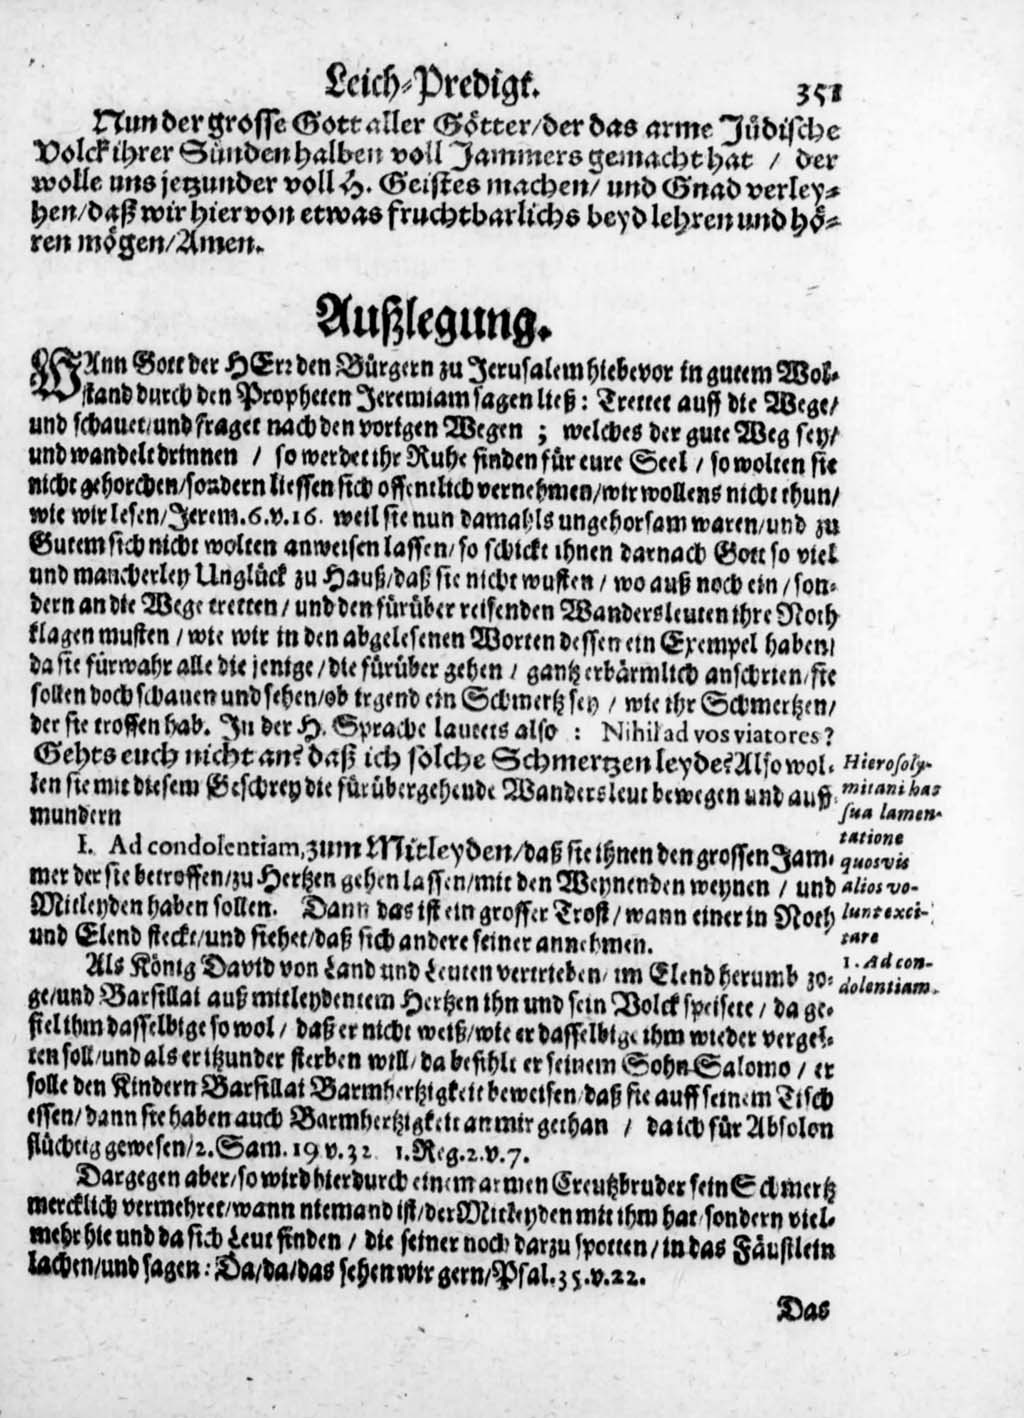 Leich-Predigt. 351
Nun der grosse Gott aller Götter/der das arme Jüdische
Volck ihrer Sünden halben voll Jammers gemacht hat / der
wolle uns jetzunder voll H. Geistes machen/ und Gnad verley-
hen/daß wir hiervon etwas fruchtbarlichs beyd lehren und hö-
ren mögen/Amen.
Außlegung.
WAnn Gott der HErr den Bürgern zu Jerusalem hiebevor in gutem Wol-
stand durch den Propheten Jeremiam sagen ließ: Trettet auff die Wege/
und schauet/und fraget nach den vorigen Wegen ; welches der gute Weg sey/
und wandelt drinnen / so werdet ihr Ruhe finden für eure Seel / so wolten sie
nicht gehorchen/sondern liessen sich offentlich vernehmen/wir wollens nicht thun/
wie wir lesen/Jerem.6.v.16. weil sie nun damahls ungehorsam waren/und zu
Gutem sich nicht wolten anweisen lassen/ so schickt ihnen darnach Gott so viel
und mancherley Unglück zu Hauß/daß sie nicht wusten / wo auß noch ein / son-
dern an die Wege tretten / und den fürüber reisenden Wandersleuten ihre Noth
klagen musten / wie wir in den abgelesenen Worten dessen ein Exempel haben/
da sie fürwahr alle die jenige / die fürüber gehen / gantz erbärmlich anschrien/sie
sollen doch schauen und sehen/ob irgend ein Schmertz sey / wie ihr Schmertzen/
der sie troffen hab. In der H. Sprache lautets also : Nihil ad vos viatores?
Gehts euch nicht an? daß ich solche Schmertzen leyde? Also wol-
len sie mit diesem Geschrey die fürübergehende Wandersleut bewegen und auff-
mundern
Hierosoly-
mitani hac
sua lamen-
tatione
quosvis
alios vo-
lunt exci-
tare
1. Ad con-
dolentiam.
I. Ad condolentiam, zum Mitleyden/daß sie ihnen den grossen Jam-
mer der sie betroffen/zu Hertzen gehen lassen/mit den Weynenden weynen / und
Mitleyden haben sollen. Dann das ist ein grosser Trost / wann einer in Noth
und Elend steckt/und siehet/daß sich andere seiner annehmen.
Als König David von Land und Leuten vertrieben/ im Elend herumb zo-
ge/und Barsillai auß mitleydentem Hertzen ihn und sein Volck speisete / da ge-
fiel ihm dasselbige so wol / daß er nicht weiß/wie er dasselbige ihm wieder vergel-
ten soll/und als er itzunder sterben will/ da befihlt er seinem Sohn Salomo / er
solle den Kindern Barsillai Barmhertzigkeit beweisen/daß sie auff seinem Tisch
essen/dann sie haben auch Barmhertzigkeit an mir gethan / da ich für Absolon
flüchtig gewesen/2. Sam. 19 v. 32 1. Reg. 2. v. 7.
Dargegen aber/so wird hierdurch einem armen Creutzbruder sein Schmertz
mercklich vermehret/wann niemand ist/der Mitleyden mit ihm hat/sondern viel-
mehr hie und da sich Leut finden / die seiner noch darzu spotten / in das Fäustlein
lachen/und sagen: Da/da/das sehen wir gern/Psal. 35. v. 22.
Das